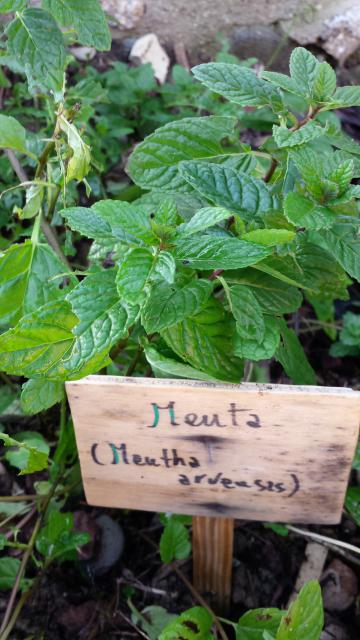 Menta
(Mentha
arvensis)